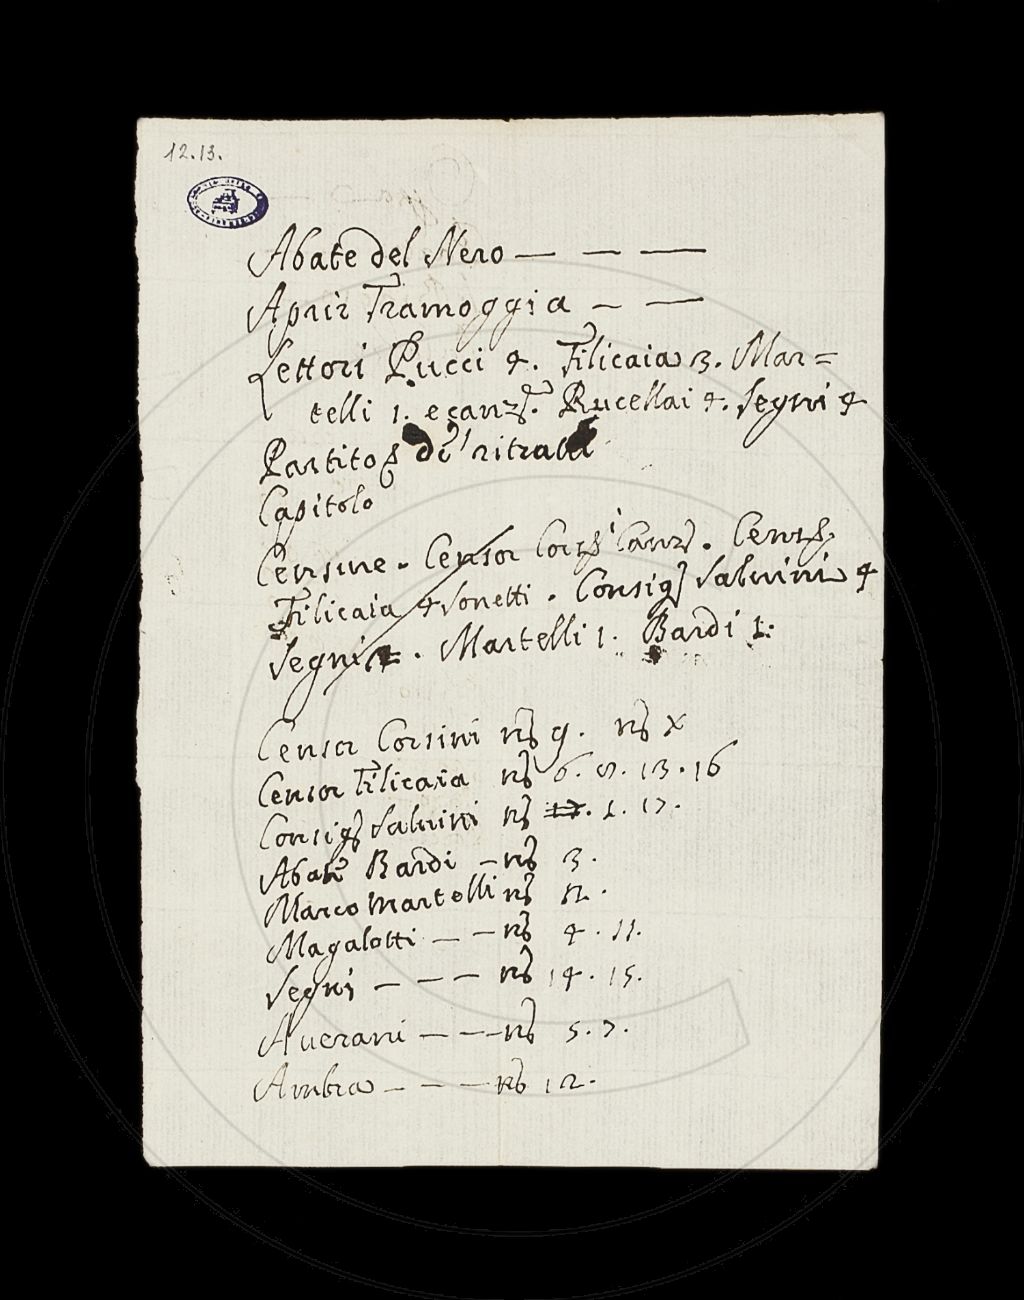 12.13.
Abate del Nero — — —
Aprir Tramoggia — —
Lettori Pucci 4. Filicaia 3. Mar=
telli 1. e canz. Rucellai 4. Segni 4
Partito di ritratti
Capitolo
Censure. Censor Cors. Canz. Cens.
Filicaia 4 Sonetti. Consig. Salvini 4
Segni. Martelli 1. Bardi 1.
Censor Corsini no 9. no X
Censor Filicaia no 6. 8. 13. 16
Consig. Salvini no 1. 17.
Abate Bardi — no 3.
Marco Martelli no 2.
Magalotti — — no 4. 11.
Segni — — — no 14. 15.
Averani — — — no 5. 7.
Ambra — — — no 12.